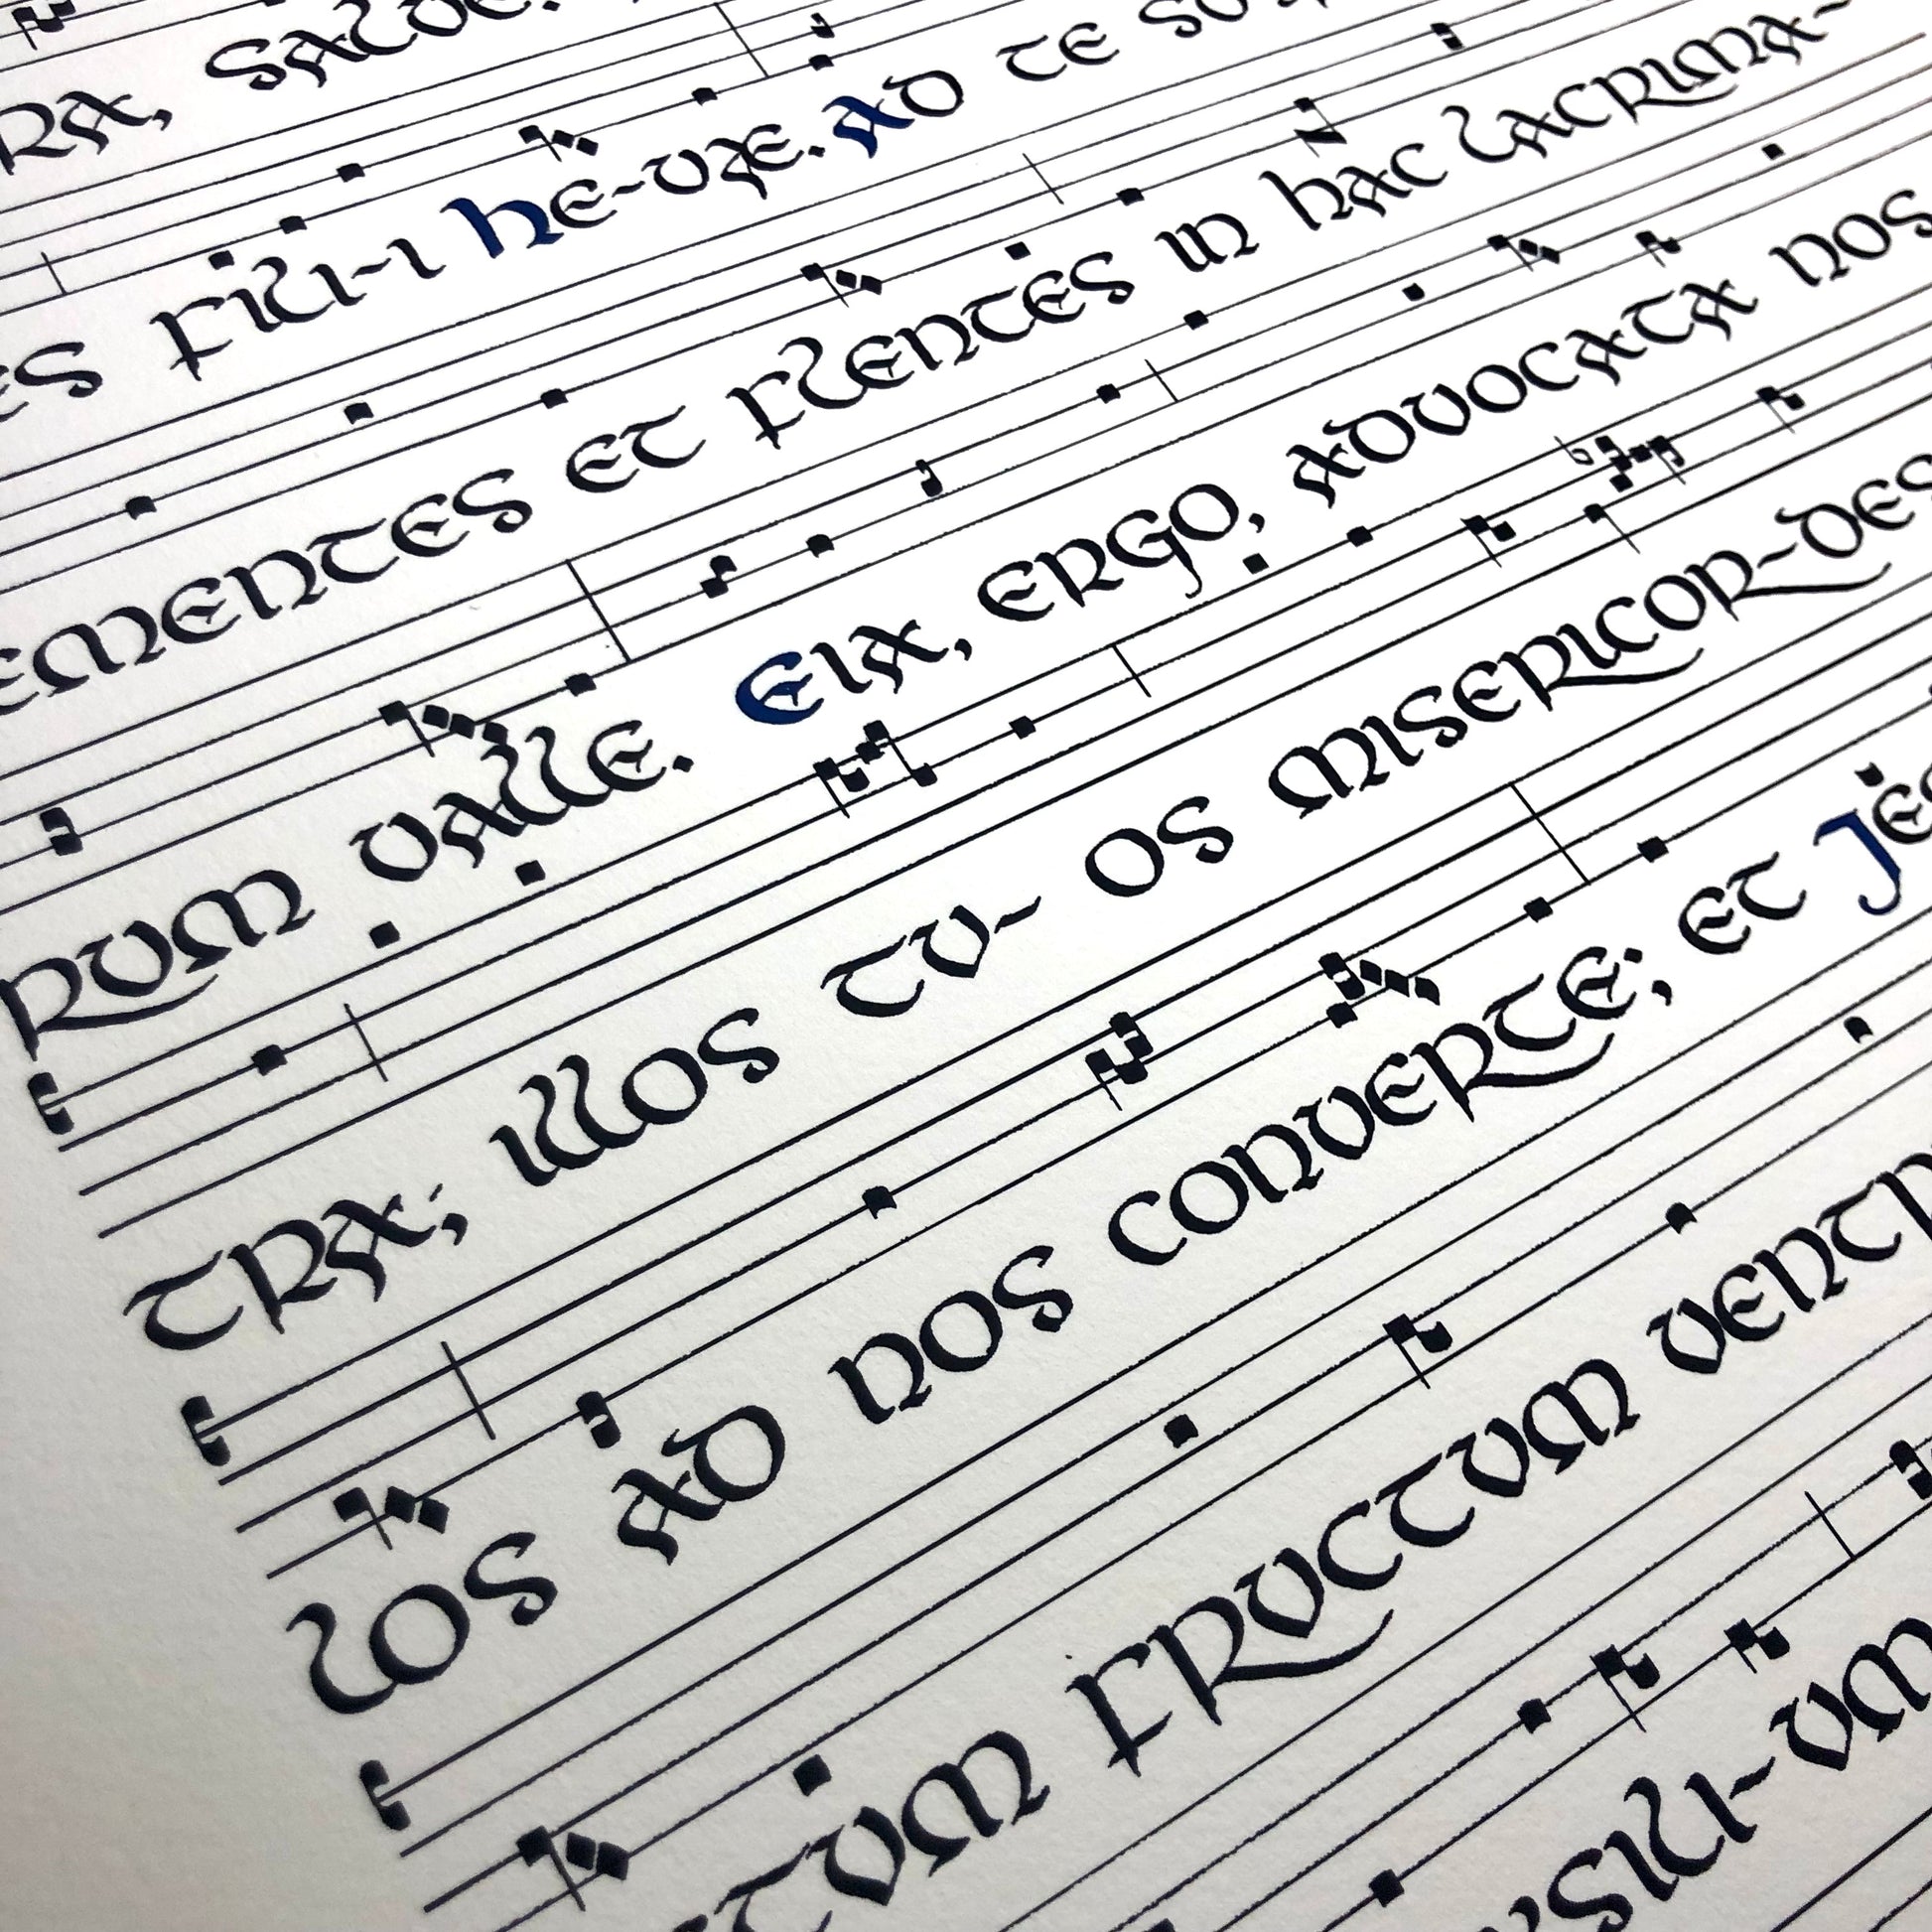 RA, SALVE.
ES FILI-I HE-VÆ. AD TE SUS
EMENTES ET FLENTES IN HAC LACRIMA-
RUM VALLE. EIA, ERGO, ADVOCATA NOS
TRA; ILLOS TU- OS MISERICOR-DES
LOS AD NOS CONVERTE; ET JES
CTUM FRUCTUM VENTR
SILI-UM